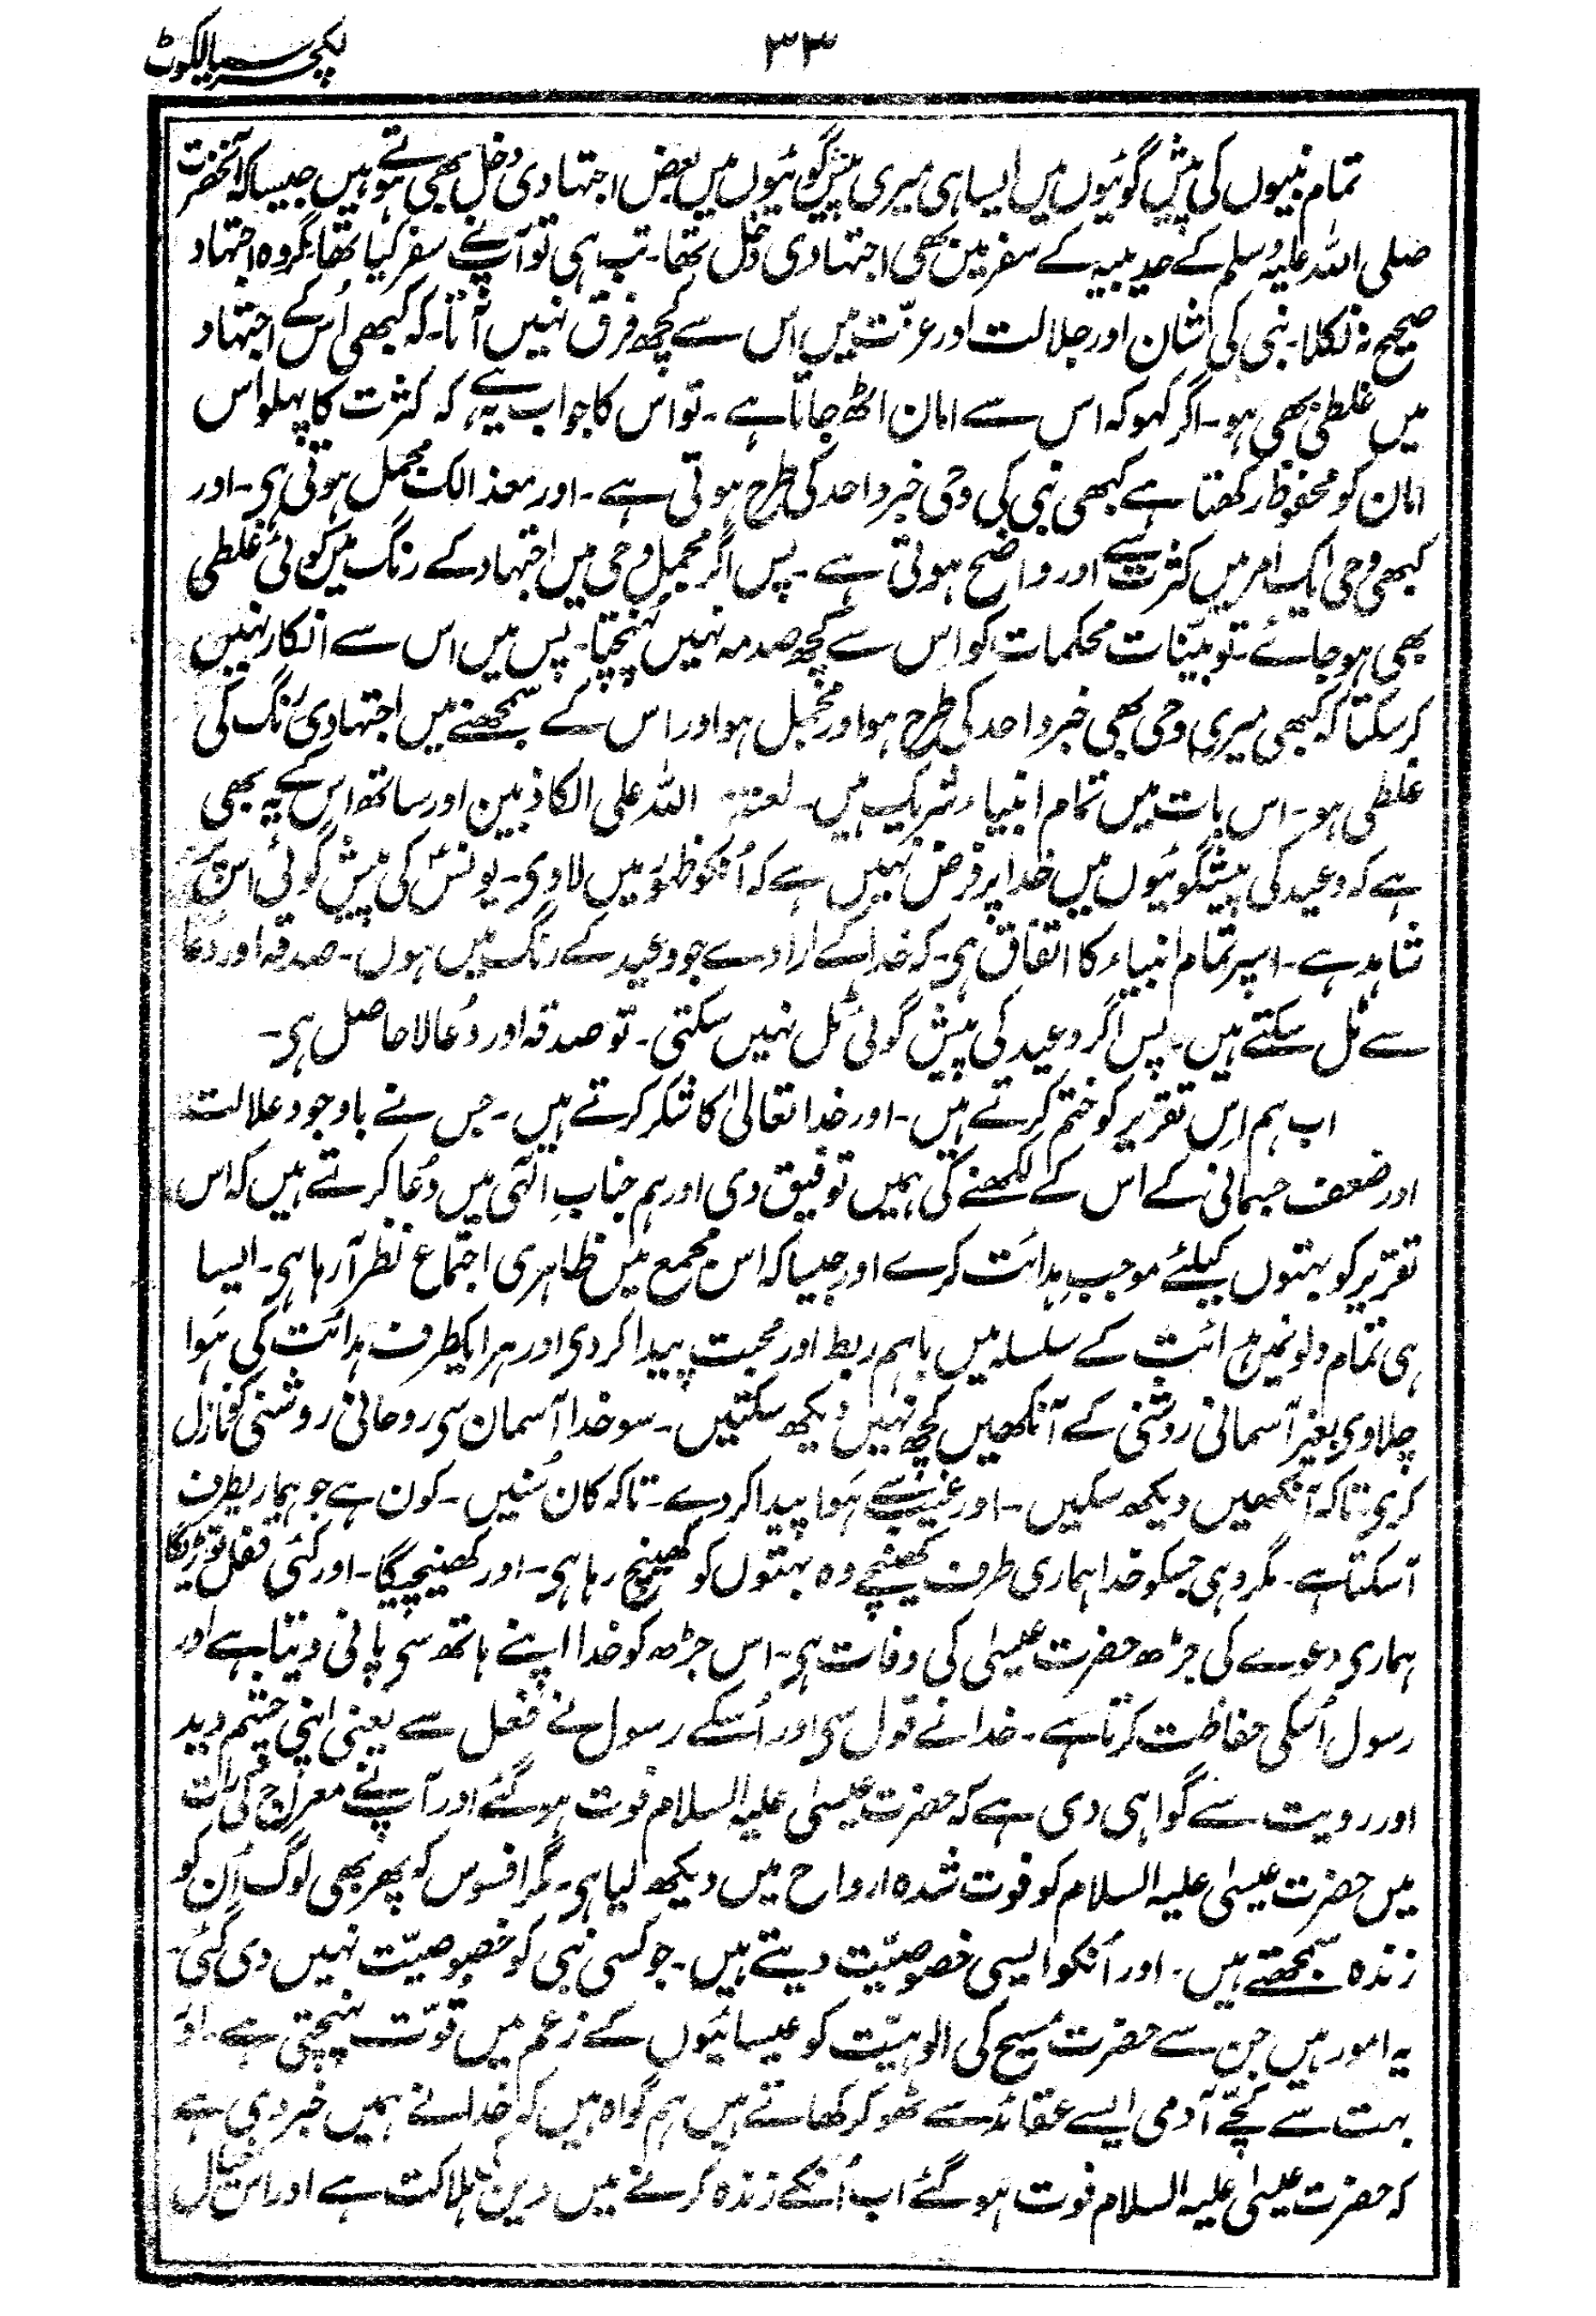 لیکچر سیالکوٹ
۳۳
تمام نبیوں کی پیش گوئیوں میں ایسا ہی میری پیشگوئیوں میں بعض اجتہادی دخل بھی ہوتے ہیں جیسا کہ آنحضرت
صلی اللہ علیہ وسلم کے حدیبیہ کے سفر میں بھی اجتہادی دخل تھا۔ تب ہی تو آپ نے سفر کیا تھا۔ مگر وہ اجتہاد
صحیح نہ نکلا۔ نبی کی شان اور جلالت اور عزّت میں اس سے کچھ فرق نہیں آتا۔ کہ کبھی اُس کے اجتہاد
میں غلطی بھی ہو۔ اگر کہو کہ اس سے امان اٹھ جاتا ہے۔ تو اس کا جواب یہ ہے کہ کثرت کا پہلو اس
امان کو محفوظ رکھتا ہے کبھی نبی کی وحی خبر واحد کی طرح ہوتی ہے۔ اور معذالک مجمل ہوتی ہی۔ اور
کبھی وحی ایک امر میں کثرت سے اور واضح ہوتی ہے۔ پس اگر مجمل وحی میں اجتہاد کے رنگ میں کوئی غلطی
بھی ہو جائے۔ تو بیّنات محکمات کو اِس سے کچھ صدمہ نہیں پہنچتا۔ پس میں اس سے انکار نہیں
کرسکتا کہ کبھی میری وحی بھی خبر واحد کی طرح ہو اور مجمل ہو اور اس کے سمجھنے میں اجتہادی رنگ کی
غلطی ہو۔ اس بات میں تمام انبیاء شریک ہیں۔ لعنۃ اللہ علی الکاذبین اور ساتھ اس کے یہ بھی
ہے کہ وعید کی پیشگوئیوں میں خدا پر فرض نہیں ہے کہ اُنکو ظہور میں لاوی۔ یونسؑ کی پیش گوئی اس پر
شاہد ہے۔ اسپر تمام انبیاء کا اتفاق ہی۔ کہ خدا کے ارادے جو وعید کے رنگ میں ہوں۔ صدقہ اور دُعا
سے ٹل سکتے ہیں۔ پس اگر وعید کی پیش گوئی ٹل نہیں سکتی۔ تو صدقہ اور دُعا لاحاصل ہی۔
اب ہم اِس تقریر کو ختم کرتے ہیں۔ اور خدا تعالیٰ کا شکر کرتے ہیں۔ جس نے باوجود علالت
اور ضعف جسمانی کے اس کے لکھنے کی ہمیں توفیق دی اور ہم جنابِ الٰہی میں دُعا کرتے ہیں کہ اس
تقریر کو بہتوں کیلئے موجبِ ہدائت کرے اور جیسا کہ اس مجمع میں ظاہری اجتماع نظر آرہا ہی۔ ایسا
ہی تمام دلونمیں ہدائت کے سلسلہ میں باہم ربط اور محبت پیدا کردی اور ہر ایکطرف ہدائت کی ہَوا
چلاوی بغیر آسمانی روشنی کے آنکھیں کچھ نہیں دیکھ سکتیں۔ سو خدا آسمان سی روحانی روشنی کو نازل
کری۔ تاکہ آنکھیں دیکھ سکیں۔ اور غیب سے ہَوا پیدا کردے۔ تاکہ کان سُنیں۔ کون ہے جو ہماریطرف
آسکتا ہے۔ مگر وہی جسکو خدا ہماری طرف کھینچے وہ بہتوں کو کھینچ رہا ہی۔ اور کھینچیگا۔ اور کئی قفل توڑیگا
ہماری دعوے کی جڑھ حضرت عیسٰی کی وفات ہی۔ اس جڑھ کو خدا اپنے ہاتھ سی پانی دیتا ہے اور
رسول اُسکی حفاظت کرتا ہے۔ خدا نے قول سی اور اُسکے رسول نے فعل سے یعنی اپنی چشم دید
اور رویت سے گواہی دی ہے کہ حضرت عیسٰی علیہ السلام فوت ہوگئے اور آپ نے معراج کی رات
میں حضرت عیسٰی علیہ السلام کو فوت شدہ ارواح میں دیکھ لیا ہی۔ مگر افسوس کہ پھر بھی لوگ اُن کو
زندہ سمجھتے ہیں۔ اور اُنکو ایسی خصوصیّت دیتے ہیں۔ جو کسی نبی کو خصوصیّت نہیں دی گئی۔
یہ امور ہیں جن سے حضرت مسیح کی الوہیّت کو عیسائیوں کے زعم میں قوّت پہنچتی ہے۔ اور
بہت سے کچّے آدمی ایسے عقائد سے ٹھوکر کھاتے ہیں ہم گواہ ہیں کہ خدا نے ہمیں خبر دی ہے
کہ حضرت عیسٰی علیہ السلام فوت ہوگئے اب اُنکے زندہ کرنے میں دین کی ہلاکت ہے اور اس خیال